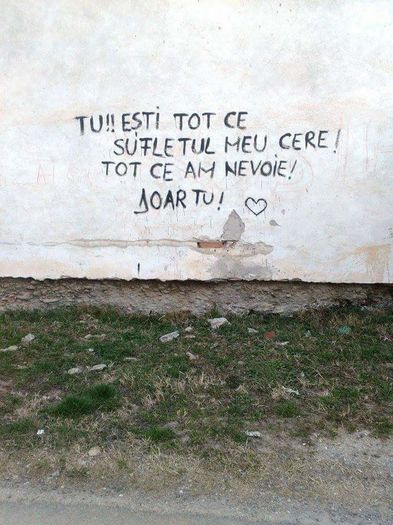 TU!! EȘTI TOT CE
SUFLETUL MEU CERE!
TOT CE AM NEVOIE!
DOAR TU! ♡